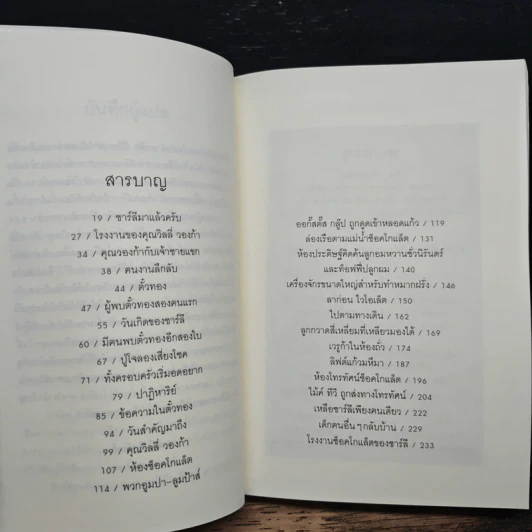 สารบาญ
19 / ชาร์ลีมาแล้วครับ
27 / โรงงานของคุณวิลลี่ วองก้า
34 / คุณวองก้ากับเจ้าชายแขก
38 / คนงานลึกลับ
44 / ตั๋วทอง
47 / ผู้พบตั๋วทองสองคนแรก
55 / วันเกิดของชาร์ลี
60 / มีคนพบตั๋วทองอีกสองใบ
67 / ปู่โจลองเสี่ยงโชค
71 / ทั้งครอบครัวเริ่มอดอยาก
79 / ปาฏิหาริย์
85 / ข้อความในตั๋วทอง
94 / วันสำคัญมาถึง
99 / คุณวิลลี่ วองก้า
107 / ห้องช็อคโกแล็ต
114 / พวกอูมปา-ลูมป้าส์
ออกัสตัส กลู๊ป ถูกดูดเข้าหลอดแก้ว / 119
ล่องเรือตามแม่น้ำช็อคโกแล็ต / 131
ห้องประดิษฐ์คิดค้นลูกอมหวานชั่วนิรันดร์
และท็อฟฟี่ปลูกผม / 140
เครื่องจักรขนาดใหญ่สำหรับทำหมากฝรั่ง / 146
ลาก่อน ไวโอเล็ต / 150
ไปตามทางเดิน / 162
ลูกกวาดสี่เหลี่ยมที่เหลียวมองได้ / 169
เวรูก้าในห้องถั่ว / 174
ลิฟต์แก้วมหึมา / 187
ห้องโทรทัศน์ช็อคโกแล็ต / 196
ไม้ค์ ทีวี ถูกส่งทางโทรทัศน์ / 204
เหลือชาร์ลีเพียงคนเดียว / 222
เด็กคนอื่นๆกลับบ้าน / 229
โรงงานช็อคโกแล็ตของชาร์ลี / 233